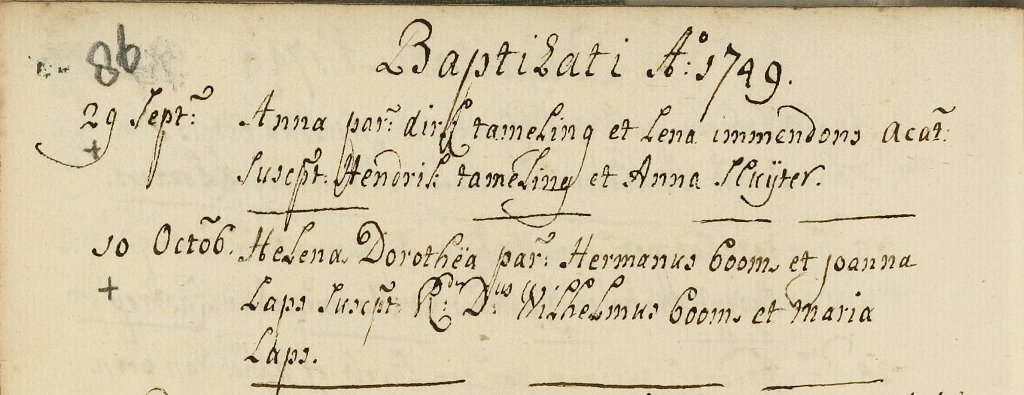 86
Baptizati A°: 1749.
29 Sept: Anna par: dirk tameling et Lena immendons acat:
+ suscpt: Hendrik tameling et Anna Sluÿter.
10 Octob. Helena Dorothëa par: Hermanus boom et joanna
+ Laps suscpt: R:dr D:us Wilhelmus boom et maria
Laps.